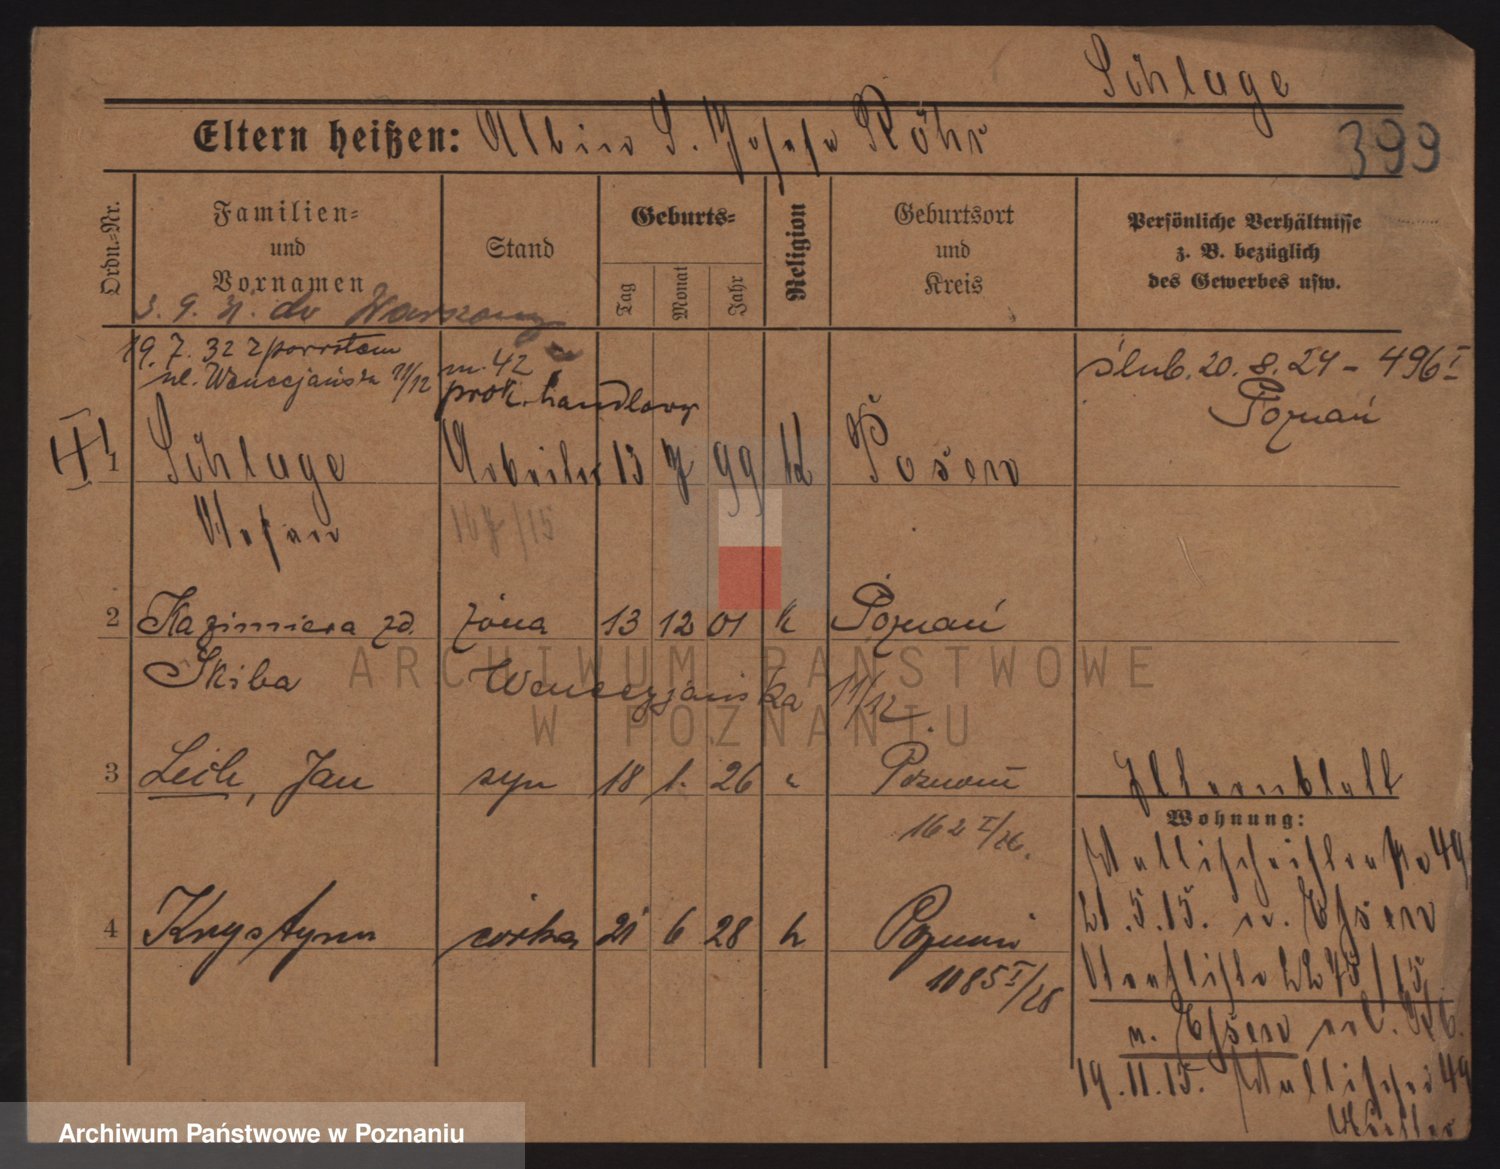 Schlage
Eltern heißen: Albin u. Josefa Röhr
399
Ordn.-Nr.
Familien-
und
Vornamen
Stand
Geburts-
Tag
Monat
Jahr
Religion
Geburtsort
und
Kreis
Persönliche Verhältnisse
z. B. bezüglich
des Gewerbes usw.
3. 9. 31. do Warszawy
19. 7. 32 z powrotem
ul. Wenecjańska 11/12 m. 42
prok. handlowy
ślub. 20. 8. 24 - 496 I
Poznań
1 Schlage Arbeiter 13 7 99 k Posen
Stefan 167/15
2 Kazimiera zd. żona 13 12 01 k Poznań
Skiba Wenecjańska 11/12.
3 Lech, Jan syn 18 1. 26 " Poznań
162 I/26.
Elternblatt
Wohnung:
Wallischeistraße 49
21.5.15. n. Essen
4 Krystyna córka 21 6 28 k Poznań
1085 I/28
n. Essen
19.11.15. Wallischei 49
ARCHIWUM PAŃSTWOWE
W POZNANIU
Archiwum Państwowe w Poznaniu